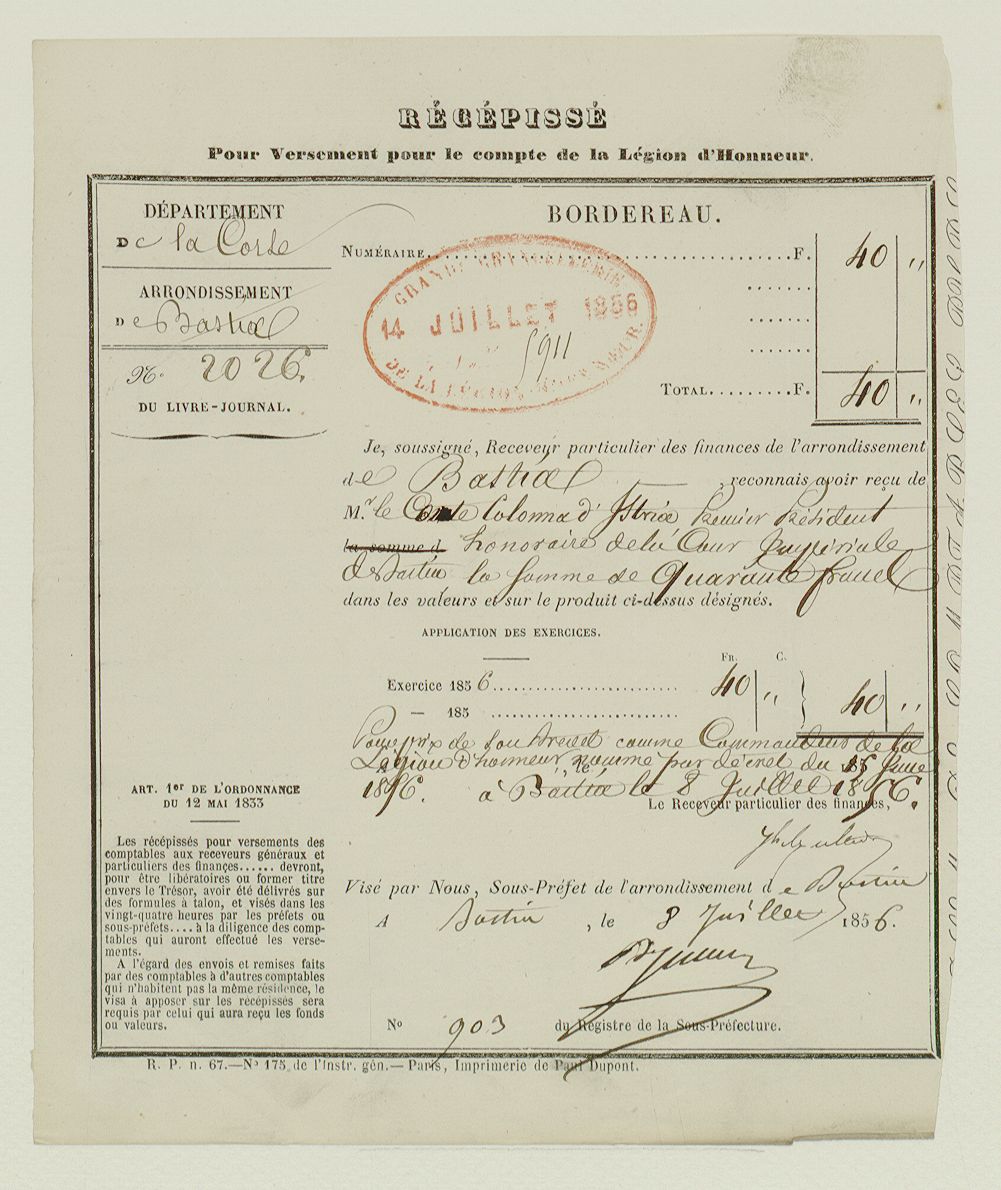 RÉCÉPISSÉ
Pour Versement pour le compte de la Légion d'Honneur.
DÉPARTEMENT
De la Corse
ARRONDISSEMENT
De Bastia
No. 2026.
DU LIVRE-JOURNAL.
BORDEREAU.
NUMÉRAIRE. F. 40 "
GRANDE CHANCELLERIE
14 JUILLET 1856
5911
DE LA LÉGION D'HONNEUR.
TOTAL. F. 40 "
Je, soussigné, Receveur particulier des finances de l'arrondissement
de Bastia, reconnais avoir reçu de
M.r le Comte Colonna d'Istria Premier Président
la somme d honoraire de la Cour Impériale
de Bastia la somme de Quarante francs
dans les valeurs et sur le produit ci-dessus désignés.
APPLICATION DES EXERCICES.
FR. C.
Exercice 1856 40 " 40 "
— 185
Pour prix de son brevet comme Commandeur de la
Légion d'honneur nommé par décret du 15 Juin
1856. à Bastia le 8 Juillet 1856.
Le Receveur particulier des finances,
Visé par Nous, Sous-Préfet de l'arrondissement de Bastia
A Bastia, le 8 Juillet 1856.
No 903 du Registre de la Sous-Préfecture.
ART. 1er DE L'ORDONNANCE
DU 12 MAI 1833
Les récépissés pour versements des
comptables aux receveurs généraux et
particuliers des finances...... devront,
pour être libératoires ou former titre
envers le Trésor, avoir été délivrés sur
des formules à talon, et visés dans les
vingt-quatre heures par les préfets ou
sous-préfets.... à la diligence des comp-
tables qui auront effectué les verse-
ments.
A l'égard des envois et remises faits
par des comptables à d'autres comptables
qui n'habitent pas la même résidence, le
visa à apposer sur les récépissés sera
requis par celui qui aura reçu les fonds
ou valeurs.
R. P. n. 67.—No 175 de l'Instr. gén.— Paris, Imprimerie de Paul Dupont.